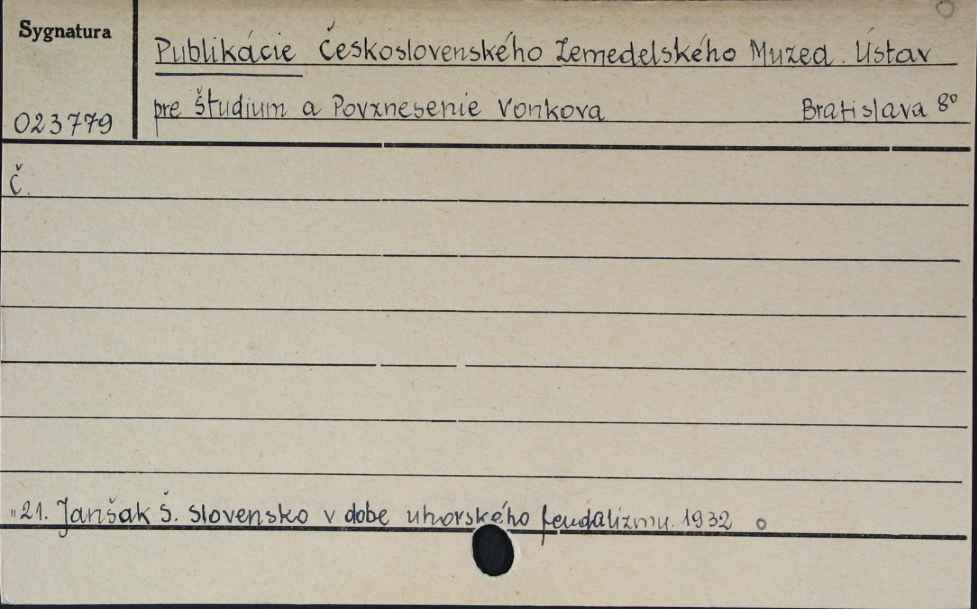 Sygnatura
Publikácie Československého Zemedelského Muzea. Ústav
023779
pre Študium a Povznesenie Vonkova Bratislava 8°
Č.
"21. Janšak Š. Slovensko v dobe uhorského feudalizmu. 1932